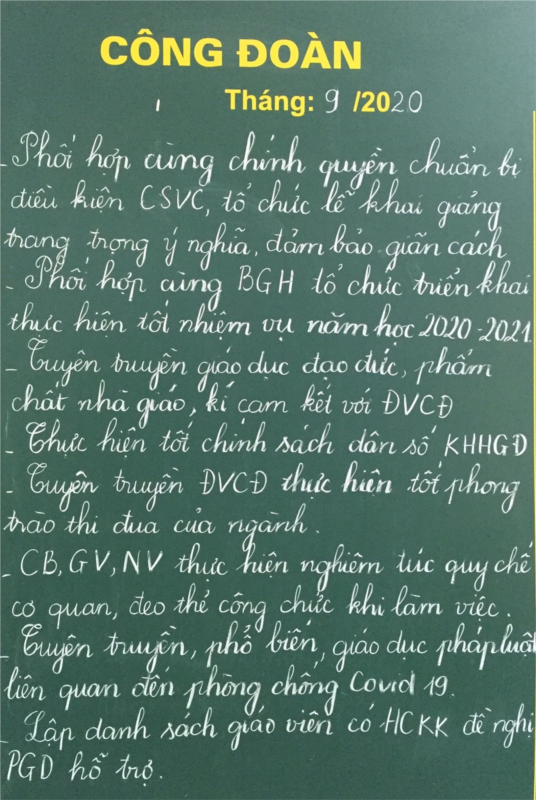 CÔNG ĐOÀN
Tháng: 9 /2020
- Phối hợp cùng chính quyền chuẩn bị
điều kiện CSVC, tổ chức lễ khai giảng
trang trọng ý nghĩa, đảm bảo giãn cách
- Phối hợp cùng BGH tổ chức triển khai
thực hiện tốt nhiệm vụ năm học 2020-2021.
- Tuyên truyền giáo dục đạo đức, phẩm
chất nhà giáo, kí cam kết với ĐVCĐ
- Thực hiện tốt chính sách dân số KHHGĐ
- Tuyên truyền ĐVCĐ thực hiện tốt phong
trào thi đua của ngành.
- CB, GV, NV thực hiện nghiêm túc quy chế
cơ quan, đeo thẻ công chức khi làm việc.
- Tuyên truyền, phổ biến, giáo dục pháp luật
liên quan đến phòng chống Covid 19.
- Lập danh sách giáo viên có HCKK đề nghị
PGD hỗ trợ.